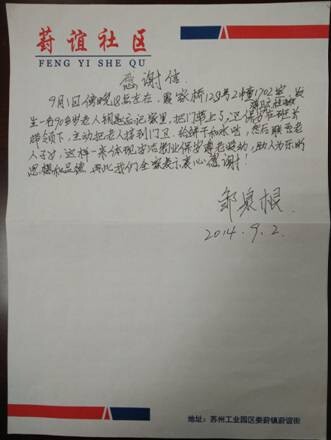 葑谊社区
FENG YI SHE QU
感谢信
9月1日傍晚 左右在, 家桥 号2幢1702室发
生一名90多岁老人钥匙忘记家里, 把门带上了,
师领下, 主动把老人接到门卫, 给饼干和水吃, 然后联系老
人子女, 这样一来体现出 业保安尊老 的, 助人为乐的
思想和品德, 再此我们全家表示衷心感谢!
邹泉根
2014.9.2.
地址: 苏州工业园区娄葑镇葑谊街